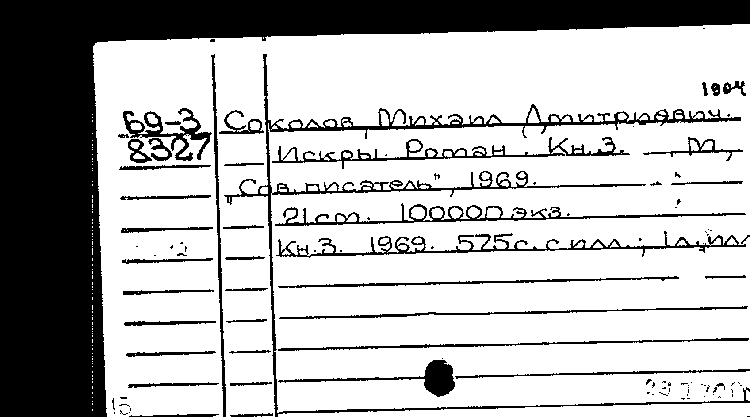 1904
69-3 Соколов, Михаил Дмитриевич.
8327 Искры. Роман. Кн.3. М.,
„Сов. писатель", 1969.
21 см. 100000 экз.
Кн.3. 1969. 575с. с илл.; 1л. илл
15